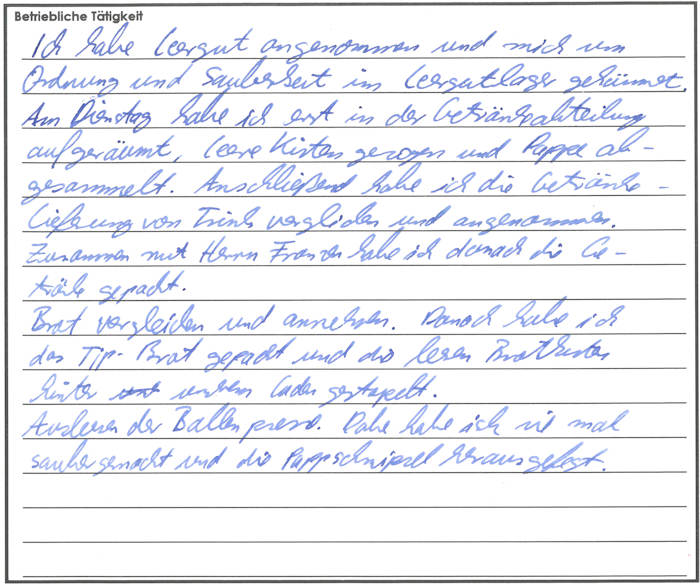 Betriebliche Tätigkeit
Ich habe Leergut angenommen und mich um
Ordnung und Sauberkeit im Leergutlager gekümmert.
Am Dienstag habe ich erst in der Getränkeabteilung
aufgeräumt, leere Kisten gezogen und Pappe ab-
gesammelt. Anschließend habe ich die Getränke-
Lieferung von Trink verglichen und angenommen.
Zusammen mit Herrn Franzen habe ich danach die Ge-
tränke gepackt.
Brot vergleichen und annehmen. Danach habe ich
das Tip-Brot gepackt und die leeren Brotkisten
hinter unserem Laden gestapelt.
Ausleeren der Ballenpresse. Dabei habe ich sie mal
sauber gemacht und die Pappschnipsel herausgefegt.